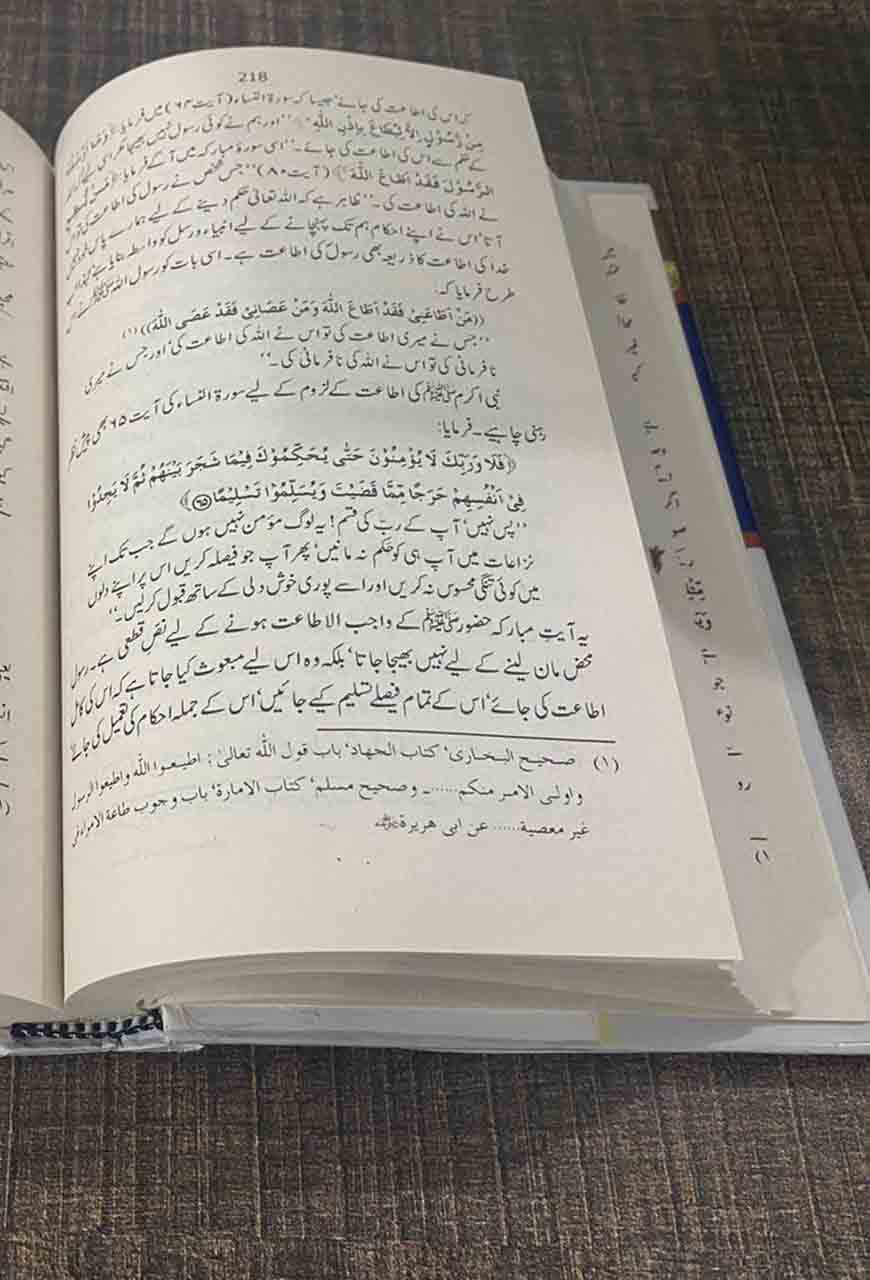 218
کہ اس کی اطاعت کی جائے، جیسا کہ سورۃ النساء (آیت ۶۴) میں فرمایا: ﴿وَمَآ اَرْسَلْنَا
مِنْ رَّسُوْلٍ اِلَّا لِیُطَاعَ بِاِذْنِ اللّٰہِ﴾ ''اور ہم نے کوئی رسول نہیں بھیجا مگر اسی لیے کہ اللہ
کے حکم سے اس کی اطاعت کی جائے۔'' اسی سورۂ مبارکہ میں آگے فرمایا:
الرَّسُوْلَ فَقَدْ اَطَاعَ اللّٰہَ﴾ (آیت ۸۰) ''جس شخص نے رسول کی اطاعت کی
نے اللہ کی اطاعت کی۔'' ظاہر ہے کہ اللہ تعالیٰ حکم دینے کے لیے ہمارے پاس خود نہیں
آتا، اس نے اپنے احکام ہم تک پہنچانے کے لیے انبیاء و رسل کو واسطہ بنایا ہے
خدا کی اطاعت کا ذریعہ بھی رسولؐ کی اطاعت ہے۔ اسی بات کو رسول اللہ ﷺ نے اس
طرح فرمایا کہ:
((مَنْ اَطَاعَنِیْ فَقَدْ اَطَاعَ اللّٰہَ وَمَنْ عَصَانِیْ فَقَدْ عَصَی اللّٰہَ)) (۱)
''جس نے میری اطاعت کی تو اس نے اللہ کی اطاعت کی، اور جس نے میری
نافرمانی کی تو اس نے اللہ کی نافرمانی کی۔''
نبی اکرم ﷺ کی اطاعت کے لزوم کے لیے سورۃ النساء کی آیت ۶۵ بھی پیش نظر
رہنی چاہیے۔ فرمایا:
﴿فَلَا وَرَبِّکَ لَا یُؤْمِنُوْنَ حَتّٰی یُحَکِّمُوْکَ فِیْمَا شَجَرَ بَیْنَھُمْ ثُمَّ لَا یَجِدُوْا
فِیْٓ اَنْفُسِھِمْ حَرَجًا مِّمَّا قَضَیْتَ وَیُسَلِّمُوْا تَسْلِیْمًا ﴿۶۵﴾﴾
''پس نہیں، آپ کے ربّ کی قسم! یہ لوگ مؤمن نہیں ہوں گے جب تک اپنے
نزاعات میں آپ ہی کو حکم نہ مانیں، پھر آپ جو فیصلہ کریں اس پر اپنے دلوں
میں کوئی تنگی محسوس نہ کریں اور اسے پوری خوش دلی کے ساتھ قبول کر لیں۔''
یہ آیتِ مبارکہ حضور ﷺ کے واجب الاطاعت ہونے کے لیے نصِّ قطعی ہے۔ رسول
محض مان لینے کے لیے نہیں بھیجا جاتا، بلکہ وہ اس لیے مبعوث کیا جاتا ہے کہ اس کی کامل
اطاعت کی جائے، اس کے تمام فیصلے تسلیم کیے جائیں، اس کے جملہ احکام کی تعمیل کی جائے
(۱) صحیح البخاری، کتاب الجهاد، باب قول اللّٰہ تعالیٰ: اطیعوا اللّٰہ واطیعوا الرسول
واولی الامر منکم.....۔ وصحیح مسلم، کتاب الامارة، باب وجوب طاعة الامراء فی
غیر معصیة..... عن ابی هریرة رضی اللہ عنہ